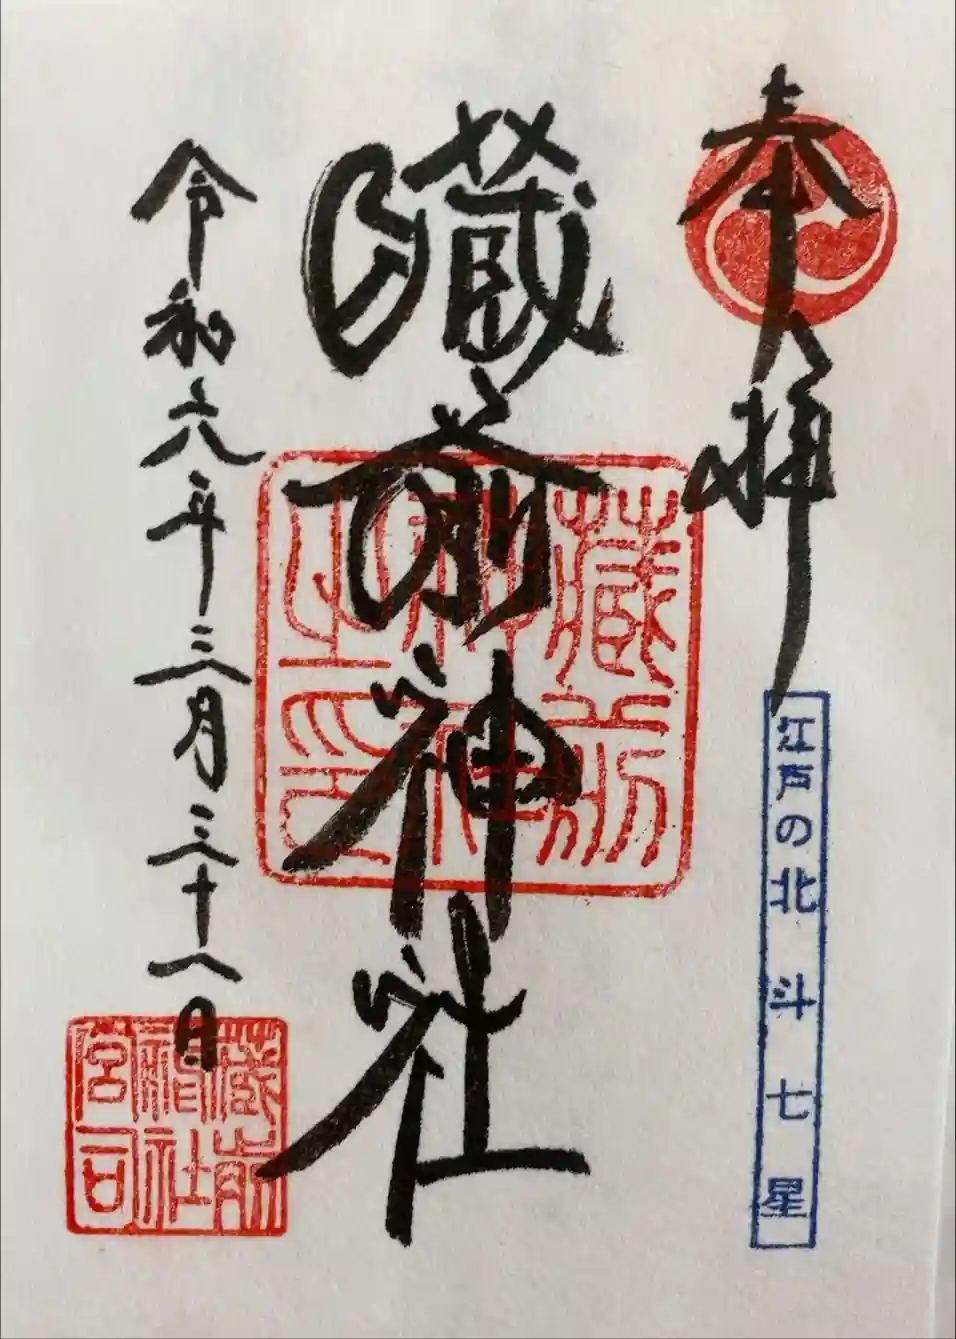 奉拝
江戸の北斗七星
藏前神社
藏前神社之印
令和六年三月三十一日
藏前神社宮司